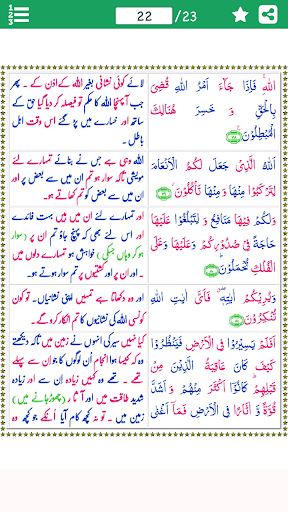 1
2
3
22 /23
اللّٰهِۚ فَاِذَا جَآءَ اَمْرُ اللّٰهِ قُضِیَ
بِالْحَقِّ وَ خَسِرَ هُنَالِكَ
الْمُبْطِلُوْنَ ﴿۷۸﴾
لائے کوئی نشانی بغیر اللہ کے اذن کے ۔ پھر
جب آپہنچا اللہ کا حکم تو فیصلہ کر دیا گیا حق کے
ساتھ اور خسارے میں پڑ گئے اس وقت اہل
باطل۔
اَللّٰهُ الَّذِیْ جَعَلَ لَكُمُ الْاَنْعَامَ
لِتَرْكَبُوْا مِنْهَا وَمِنْهَا تَاْكُلُوْنَ ﴿۷۹﴾
اللہ وہی ہے جس نے بنائے تمہارے لئے
مویشی تاکہ سوار ہو تم ان میں سے بعض پر اور
ان میں سے بعض کو تم کھاتے ہو۔
وَلَكُمْ فِیْهَا مَنَافِعُ وَ لِتَبْلُغُوْا عَلَیْهَا
حَاجَةً فِیْ صُدُوْرِكُمْ وَعَلَیْهَا وَعَلَی
الْفُلْكِ تُحْمَلُوْنَ ﴿۸۰﴾
اور تمہارے لئے ان میں ہیں بہت فائدے
اور اس لئے بھی کہ پہنچ جاؤ تم ان پر (سوار
ہو کر وہاں جسکی) خواہش ہو تمہارے دلوں میں
۔ اور ان پر اور کشتیوں پر تم سوار ہوتے ہو۔
وَیُرِیْكُمْ اٰیٰتِهٖ فَاَیَّ اٰیٰتِ اللّٰهِ
تُنْكِرُوْنَ ﴿۸۱﴾
اور وہ دکھاتا ہے تمہیں اپنی نشانیاں۔ تو کون
کونسی اللہ کی نشانیوں کا تم انکار کرو گے۔
اَفَلَمْ یَسِیْرُوْا فِی الْاَرْضِ فَیَنْظُرُوْا
كَیْفَ كَانَ عَاقِبَةُ الَّذِیْنَ مِنْ
قَبْلِهِمْ كَانُوْۤا اَكْثَرَ مِنْهُمْ وَ اَشَدَّ
قُوَّةً وَّ اٰثَارًا فِی الْاَرْضِ فَمَاۤ اَغْنٰی
کیا نہیں سیر کی انہوں نے زمین میں تاکہ دیکھتے
وہ کہ کیسا ہوا انجام ان لوگوں کا جو ان سے پہلے
تھے ۔ تھے وہ کہیں زیادہ ان سے اور
شدید طاقت میں اور آثار (چھوڑ جانے میں)
زمین میں ۔ تو نہ کچھ کام آیا انکے جو کچھ وہ